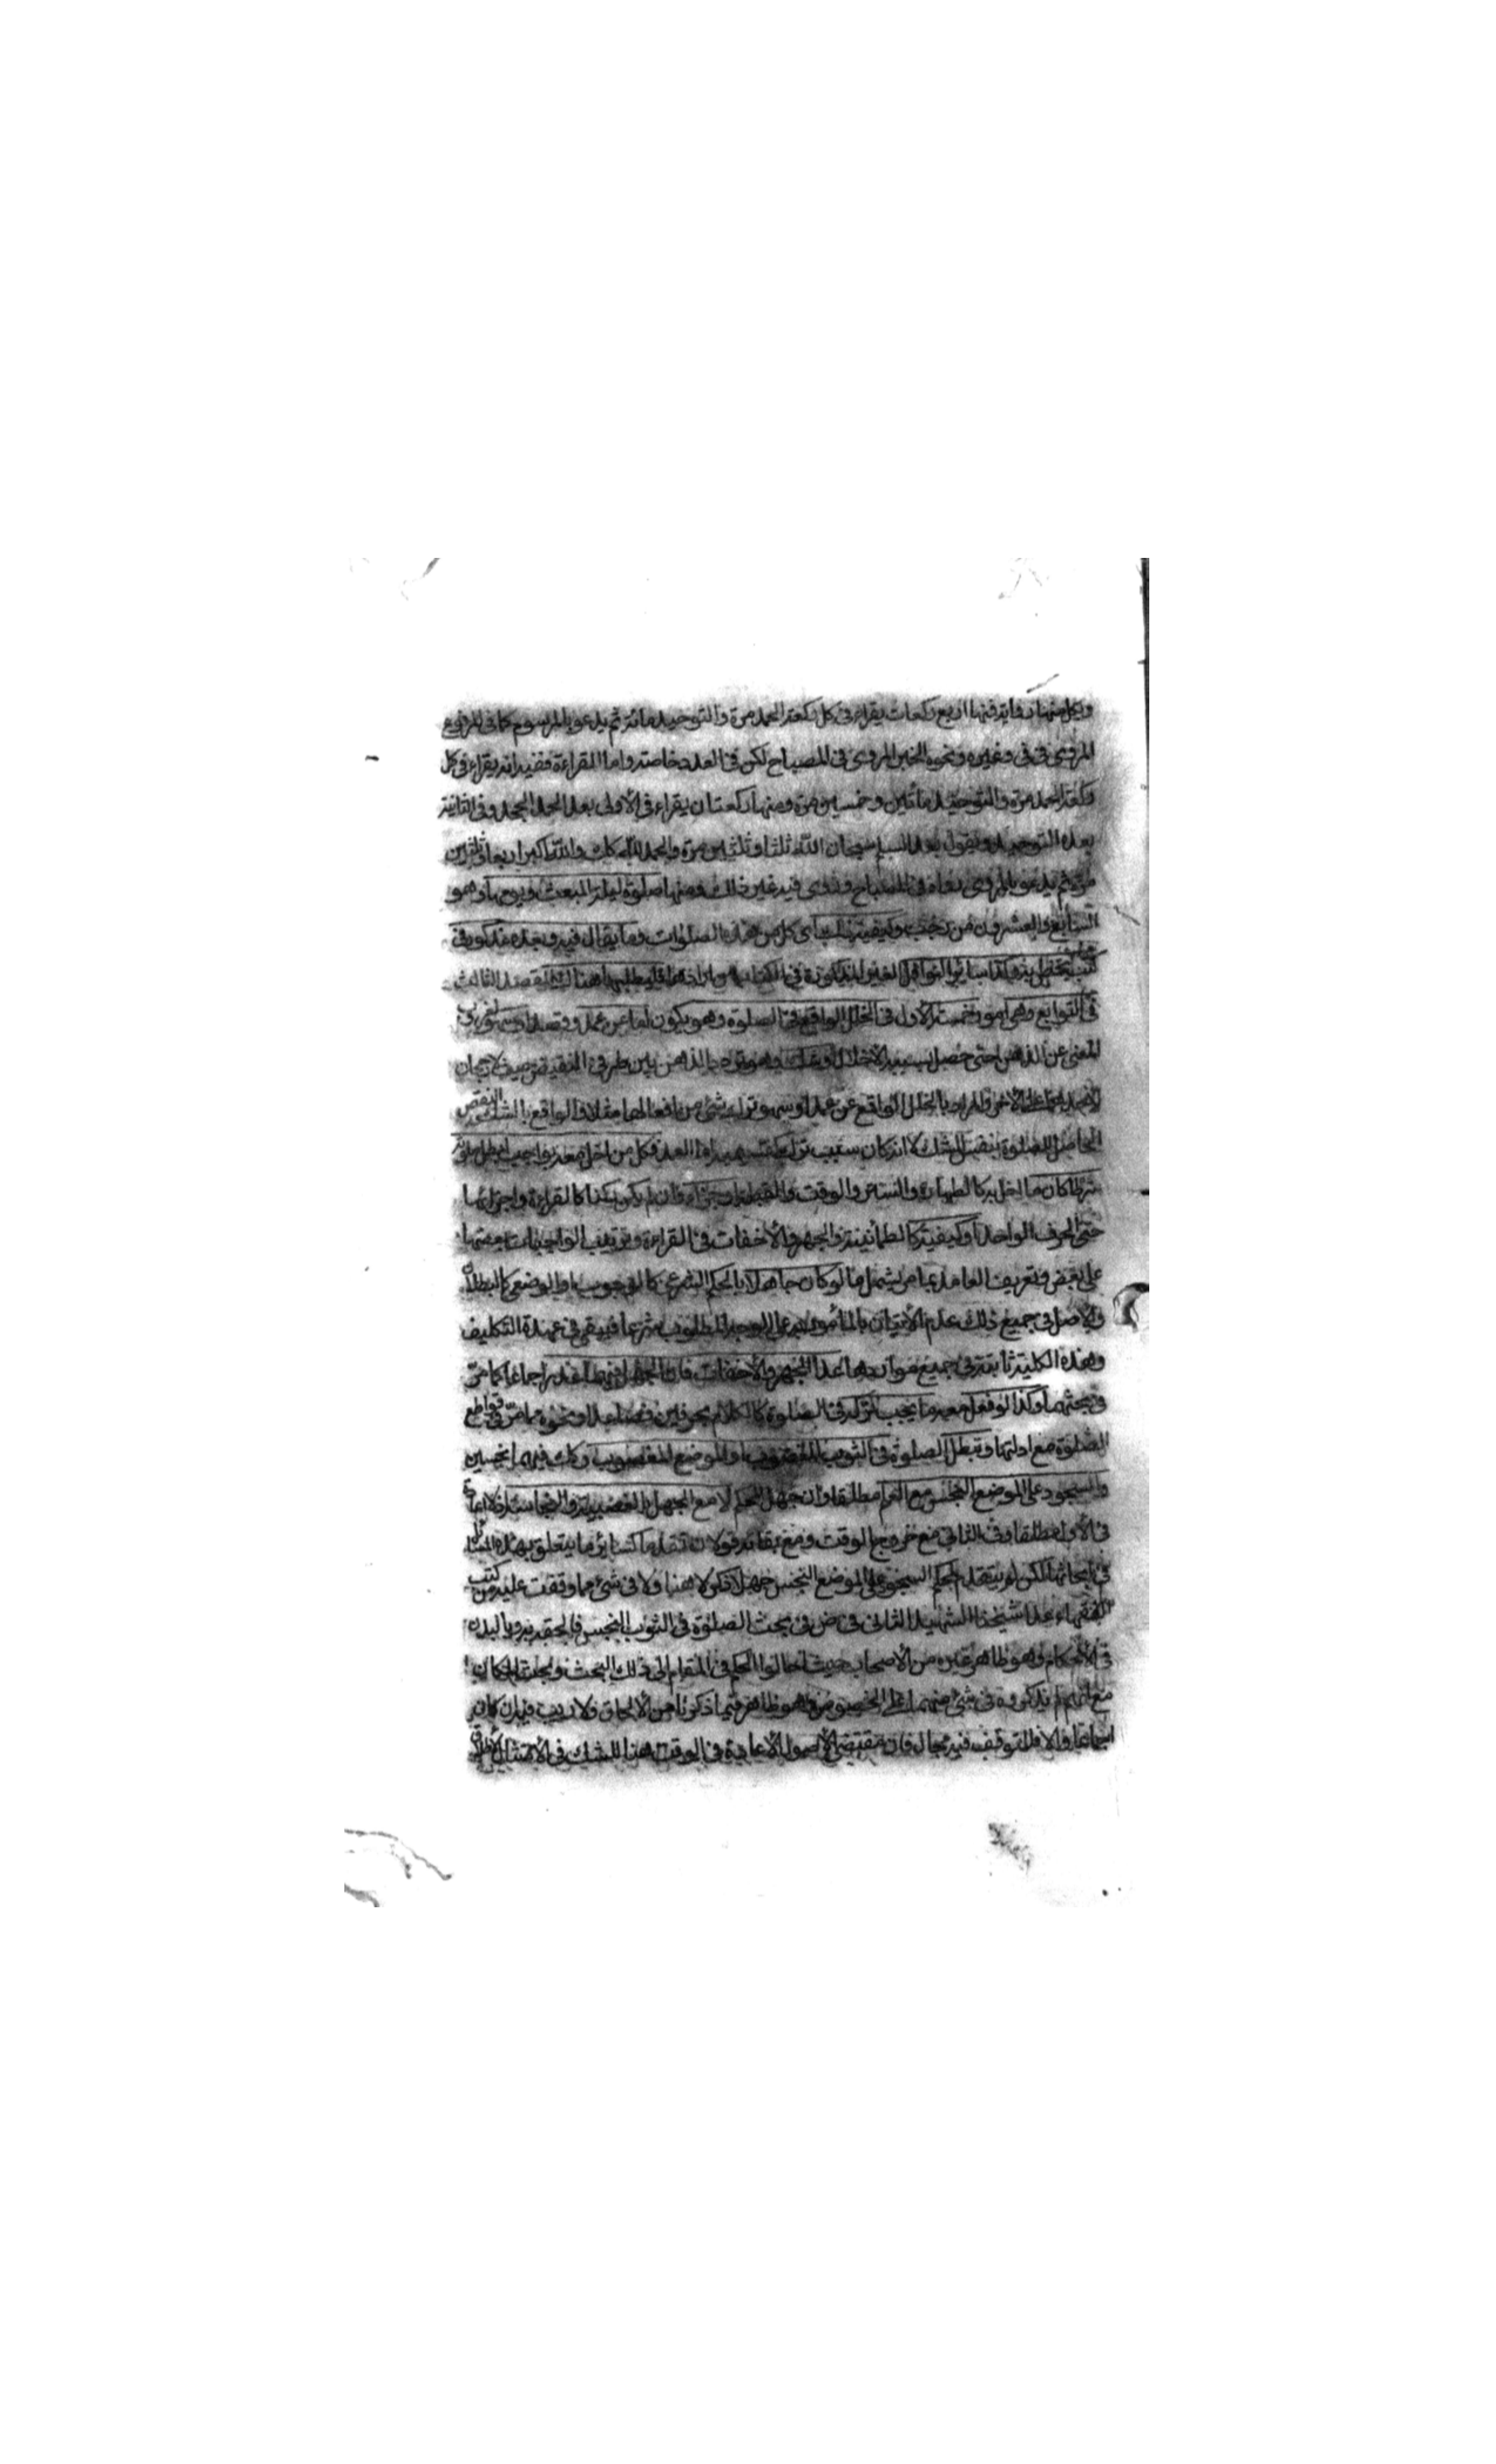 وبكل منهما رواية فمنها اربع ركعات يقراء في كل ركعة الحمد مرة والتوحيد مائة ثم يدعو بالمرسوم كما في المرفوع
المروي في في وغيره ونحوه الخبر المروي في المصباح لكن في العدد خاصة واما القراءة ففيه انه يقراء في كل
ركعة الحمد مرة والتوحيد مأتين وخمسين مرة ومنها ركعتان يقراء في الأولى بعد الحمد الجحد وفي الثانية
بعده التوحيد ويقول بعد السلم سبحان الله ثلثا وثلثين مرة والحمد لله كك والله اكبر اربعا وثلثين
مرة ثم يدعو بالمروي رواه في المصباح وروى فيه غير ذلك ومنها صلوة ليلة المبعث ويومها وهو
السابع والعشرون من رجب وكيفية ذلك اى كل من هذه الصلوات وما يقال فيه وبعده مذكور في
كتب تختص به وكذا سائر النوافل الغير المذكورة في الكتاب من ارادها فليطلبها هناك المقصد الثالث
في التوابع وهى امور خمسة الاول في الخلل الواقع في الصلوة وهو يكون اما عن عمد وقصد او سهو
المعنى عن الذهن حتى حصل بسببه الاخلال او شك وهو تردد الذهن بين طرفي النقيض حيث لا رجحان
لاحدهما على الاخر والمراد بالخلل الواقع عن عمد او سهو ترك شئ من افعالها مثلا والواقع بالشك النقص
الحاصل للصلوة بنفس الشك لا انه كان سببه ترك كقسيميه اما العمد فكل من اخل معه بواجب ابطل صلوته
شرطا كان ما اخل به كالطهارة والستر والوقت والقبلة او جزء وان لم يكن ركنا كالقراءة واجزائها
حتى الحرف الواحد او كيفية كالطمأنينة والجهر والأخفات في القراءة وترتيب الواجبات بعضها
على بعض وتعريف العامد بما مر يشمل ما لو كان جاهلا بالحكم الشرعي كالوجوب او الوضعي كالبطلان
والاصل في جميع ذلك عدم الأتيان بالمأمور به على الوجه المطلوب شرعا فيبقى في عهدة التكليف
وهذه الكلية ثابتة في جميع مواردها عدا الجهر والأخفات فان الجهل فيهما عذر اجماعا كما مر
في بحثهما وكذا لو فعل معه ما يجب تركه في الصلوة كالكلام بحرفين فصاعدا ونحوه مما مر في قواطع
الصلوة مع ادلتها وتبطل الصلوة في الثوب المغصوب او الموضع المغصوب وكك فيهما نجسين
والسجود على الموضع النجس مع العلم مطلقا وان جهل الحكم لا مع الجهل بالغصبية والنجاسة فلا اعادة
في الأول مطلقا وفي الثاني مع خروج الوقت ومع بقائه قولان تقدما كسائر ما يتعلق بهذه المسائل
في ابحاثها لكن لم يتقدم لحكم السجود على الموضع النجس جهلا ذكر لا هنا ولا في شئ مما وقفت عليه من كتب
الفقهاء عدا شيخنا الشهيد الثاني في ض في بحث الصلوة في الثوب النجس فالحقه به وبالبدن
في الأحكام وهو ظاهر غيره من الأصحاب حيث احالوا الحكم في المقام الى ذلك البحث وبحث المكان
مع انهم لم يذكروه في شئ منهما على الخصوص وهو ظاهر فيما ذكرنا من الألحاق ولا ريب فيه ان كان
اجماعا والا فللتوقف فيه مجال فان مقتضى الاصول الأعادة في الوقت هنا للشك في الأمتثال